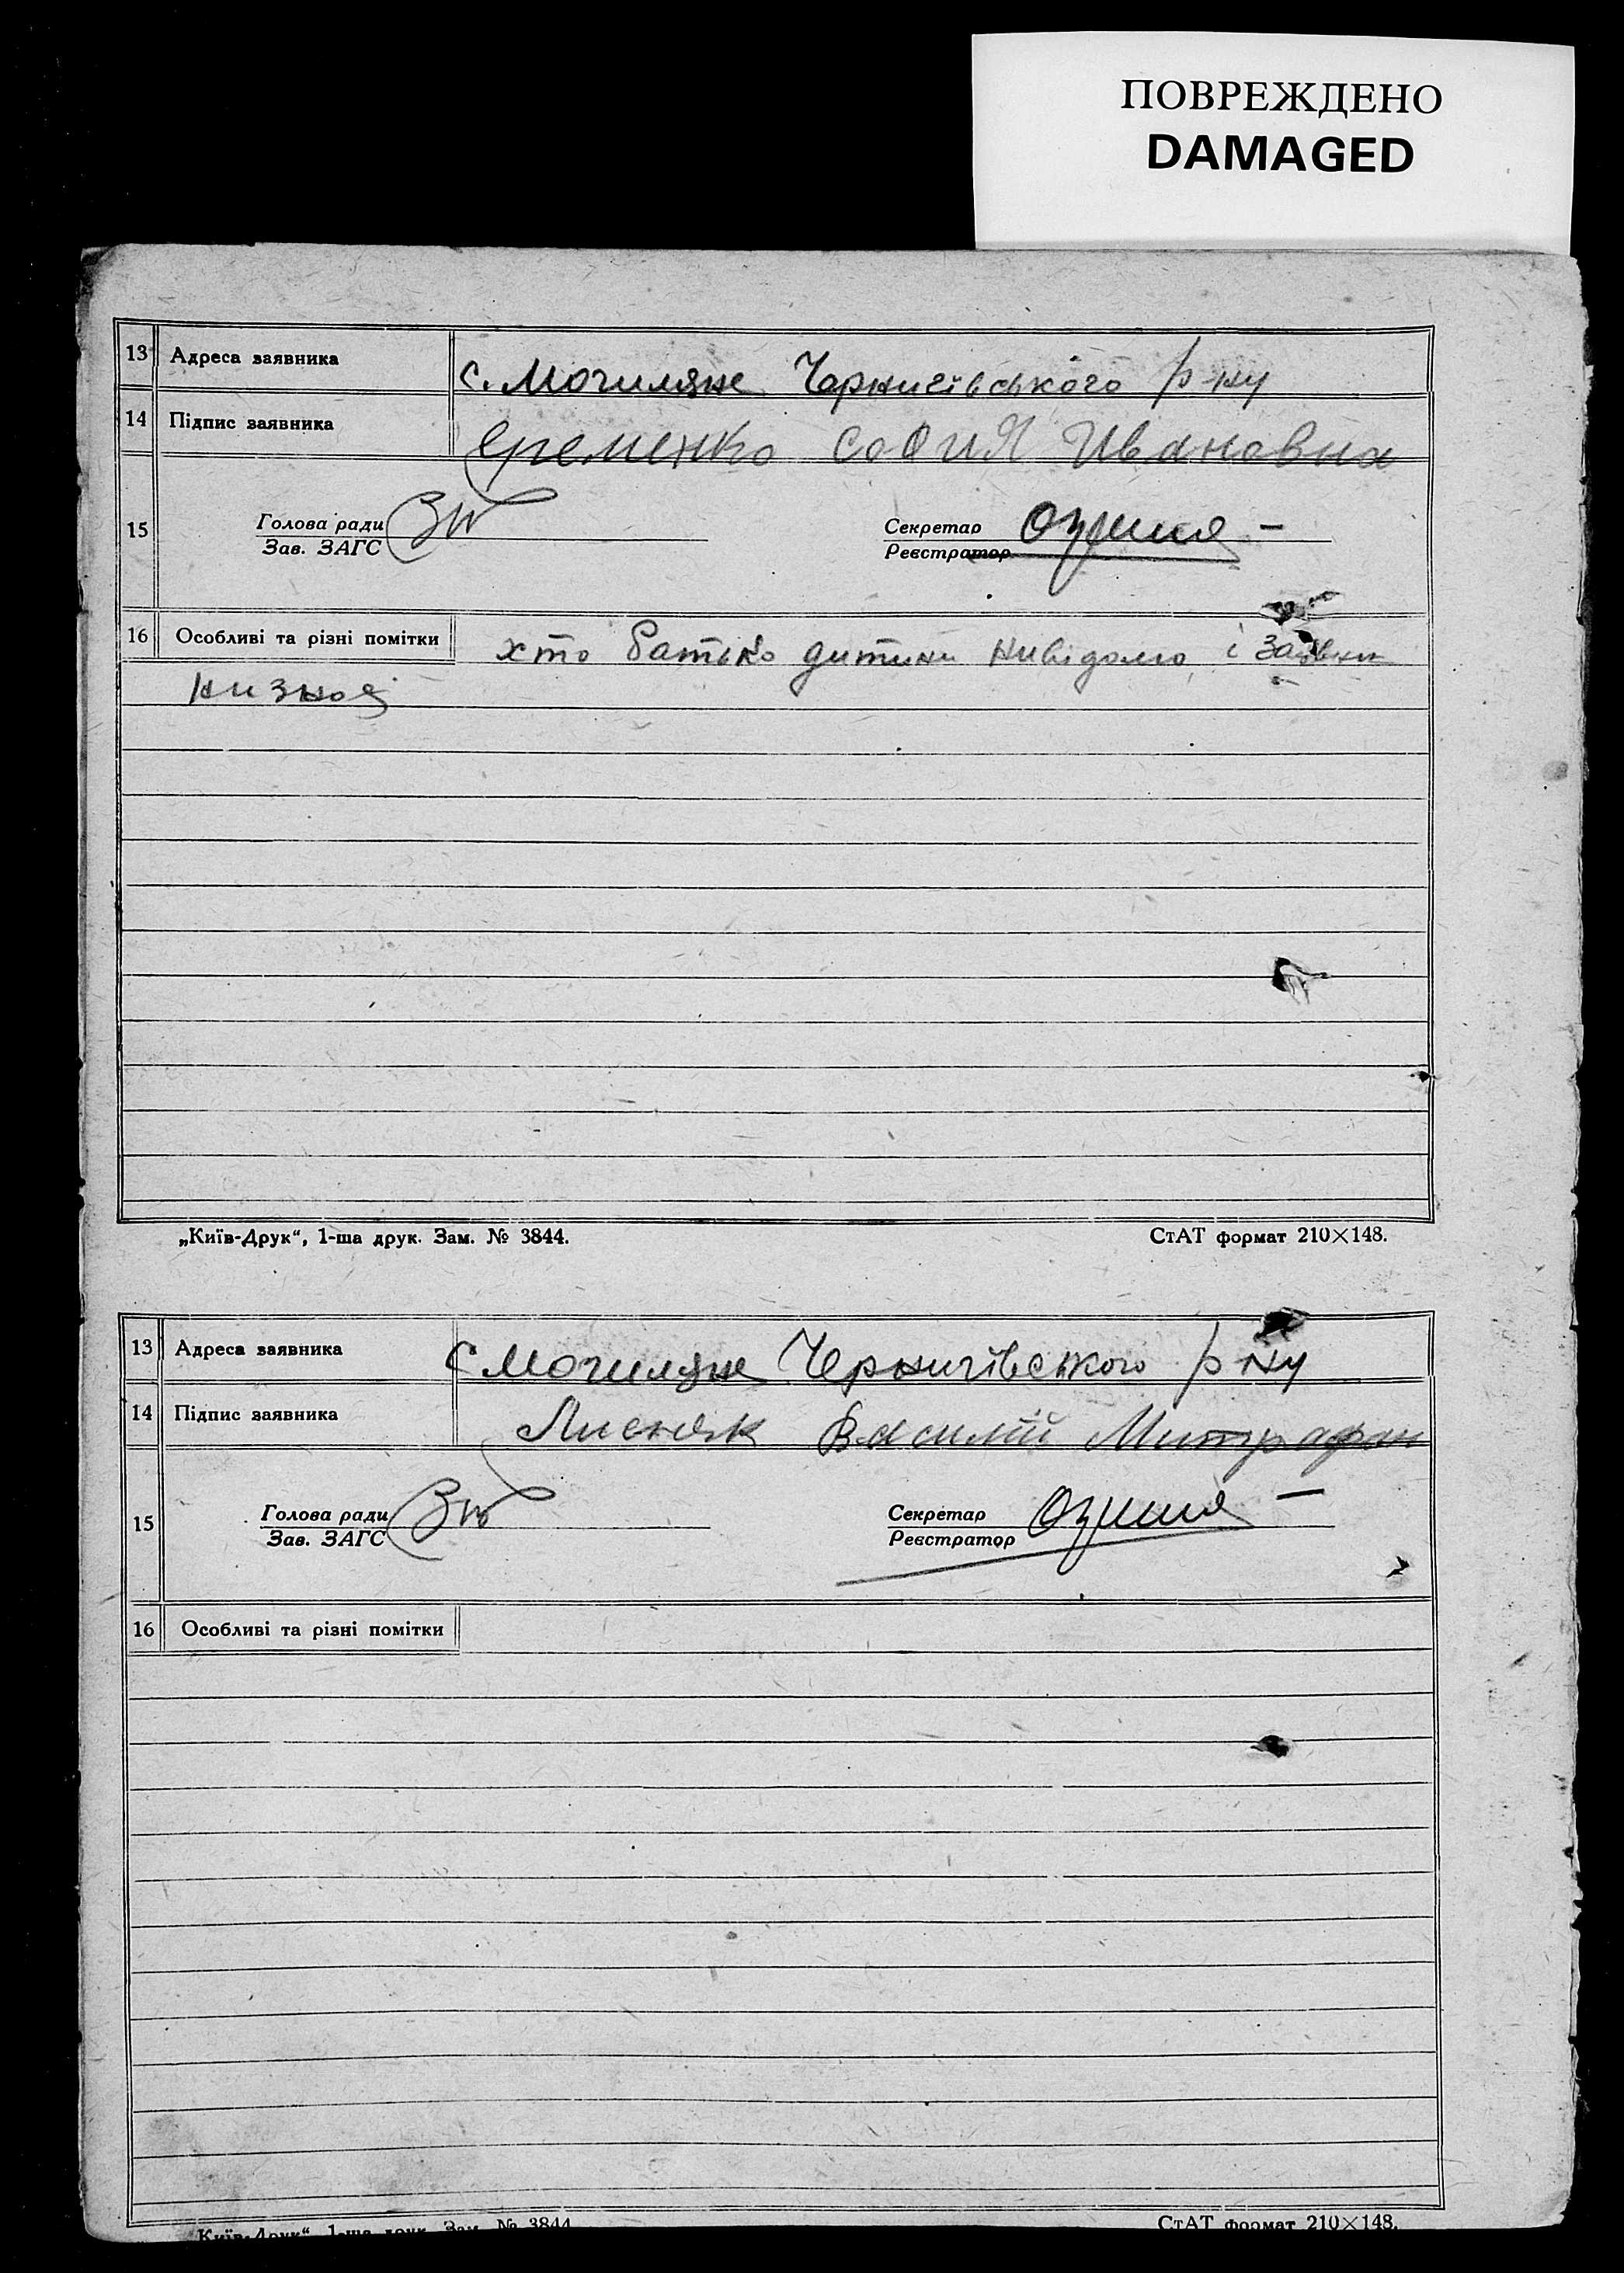 ПОВРЕЖДЕНО
DAMAGED
13 Адреса заявника с. Могиляне Чернигівського р-ну
14 Підпис заявника Еременко София Ивановна
15 Голова ради Секретар
Зав. ЗАГС Реєстратор
16 Особливі та різні помітки хто батько дитини нивідомо, і заявни
низноя
„Київ-Друк“, 1-ша друк. Зам. № 3844. СтАТ формат 210×148.
13 Адреса заявника с Могиляне Чернигівського р-ну
14 Підпис заявника Лисняк Василий Митрафан
15 Голова ради Секретар
Зав. ЗАГС Реєстратор
16 Особливі та різні помітки
„Київ-Друк“, 1-ша друк. Зам. № 3844. СтАТ формат 210×148.